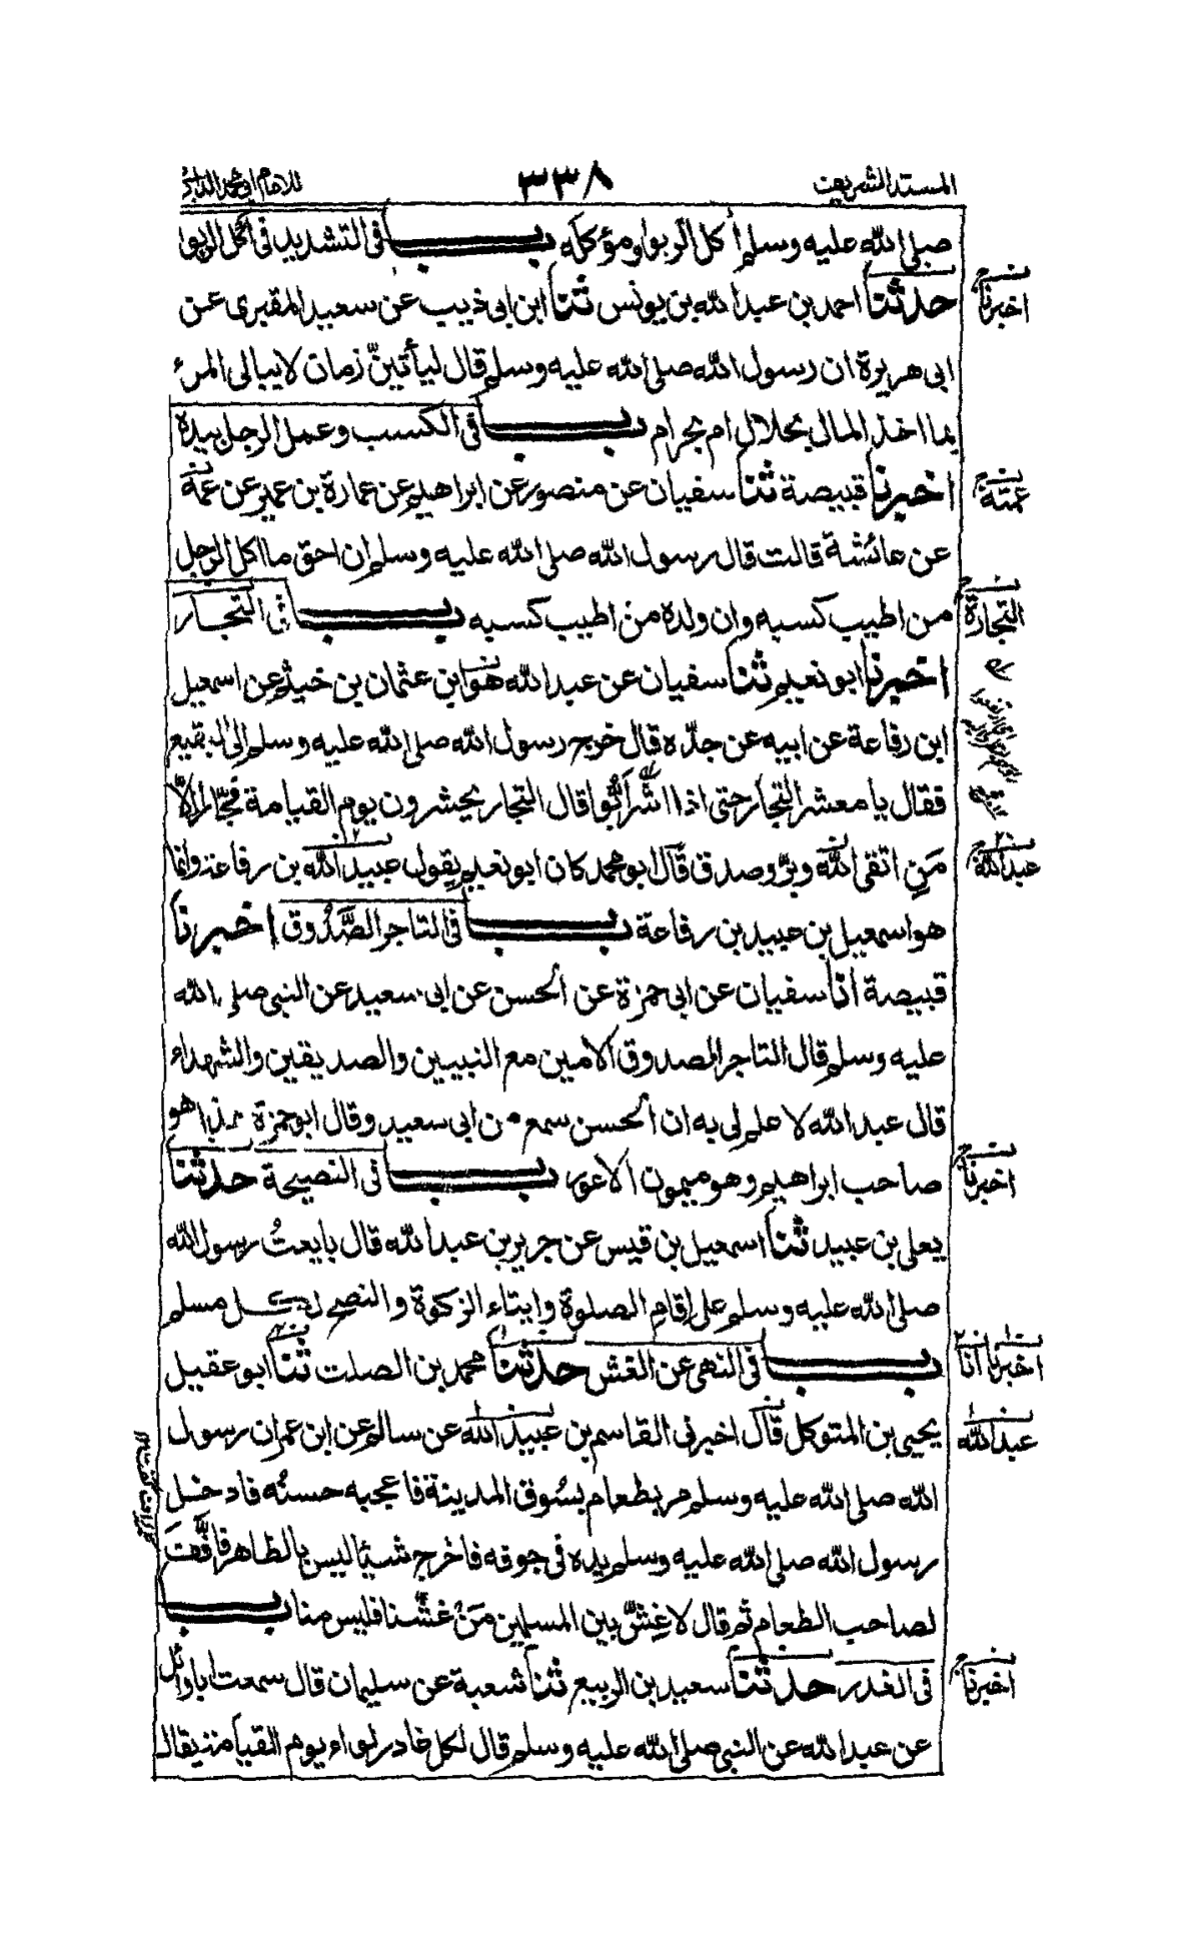 المسند الشريف
٣٣٨
للامام ابى محمد الدارمى
صلى الله عليه وسلم أكل الربوا ومؤكله باب فى التشديد فى اكل الربوا
حدثنا احمد بن عبد الله بن يونس ثنا ابن ابى ذيب عن سعيد المقبرى عن
ابى هريرة ان رسول الله صلى الله عليه وسلم قال ليأتينّ زمان لا يبالى المرء
بما اخذ المال بحلال ام بحرام باب فى الكسب وعمل الرجل بيده
اخبرنا قبيصة ثنا سفيان عن منصور عن ابراهيم عن عمارة بن عمير عن عمة
عن عائشة قالت قال رسول الله صلى الله عليه وسلم ان احق ما اكل الرجل
من اطيب كسبه وان ولده من اطيب كسبه باب فى التجار
اخبرنا ابو نعيم ثنا سفيان عن عبد الله هو ابن عثمان بن خيثم عن اسمعيل
ابن رفاعة عن ابيه عن جدّه قال خرج رسول الله صلى الله عليه وسلم الى البقيع
فقال يا معشر التجار حتى اذا اشْرَأَبُّوا قال التجار يحشرون يوم القيامة فجّارا إلّا
مَنِ اتقى الله وبرّ وصدق قال ابو محمد كان ابو نعيم يقول عبيد الله بن رفاعة وانما
هو اسمعيل بن عبيد بن رفاعة باب فى التاجر الصَّدُوق اخبرنا
قبيصة انا سفيان عن ابى حمزة عن الحسن عن ابى سعيد عن النبى صلى الله
عليه وسلم قال التاجر الصدوق الامين مع النبيين والصديقين والشهداء
قال عبد الله لا علم لى به ان الحسن سمع من ابى سعيد وقال ابو حمزة هذا هو
صاحب ابراهيم وهو ميمون الاعور باب فى النصيحة حدثنا
يعلى بن عبيد ثنا اسمعيل بن قيس عن جرير بن عبد الله قال بايعتُ رسول الله
صلى الله عليه وسلم على اقام الصلوة وايتاء الزكوة والنصح لكل مسلم
باب فى النهى عن الغش حدثنا محمد بن الصلت ثنا ابو عقيل
يحيى بن المتوكل قال اخبرنى القاسم بن عبيد الله عن سالم عن ابن عمر ان رسول
الله صلى الله عليه وسلم مر بطعام بسُوق المدينة فاعجبه حسنُه فادخل
رسول الله صلى الله عليه وسلم يده فى جوفه فاخرج شيئا ليس بالظاهر فافّفَ
لصاحب الطعام ثم قال لا غِشَّ بين المسلمين مَنْ غشّنا فليس منا باب
فى الغدر حدثنا سعيد بن الربيع ثنا شعبة عن سليمان قال سمعت ابا وائل
عن عبد الله عن النبى صلى الله عليه وسلم قال لكل غادر لواء يوم القيامة يقال
اخبرنا
عمته
التجارة
عبد الله
اخبرنا
اخبرنا انا
عبد الله
اخبرنا